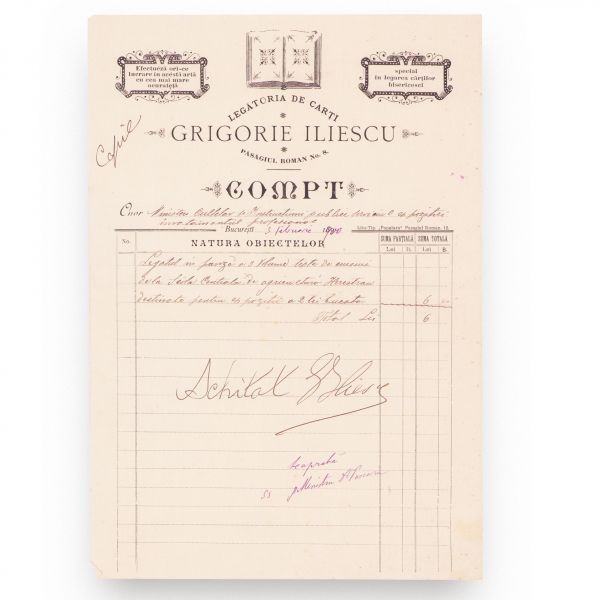 Efectueză ori-ce
lucrare în acéstă artă
cu cea mai mare
acurateță
special
în legarea cărților
bisericesci
LEGĂTORIA DE CARTI
GRIGORIE ILIESCU
PASAGIUL ROMAN No. 8.
Copie
COMPT
Onor Minister Cultelor și Instrucțiunei publice
profesional
București 3 februarie 1900
Lito-Tip. „Populara” Pasagiul Român, 12
No. NATURA OBIECTELOR SUMA PARȚIALĂ SUMA TOTALĂ
Lei B. Lei B.
Legatul in panză a 3 volume
de la Scola Centrala de agricultură Herestrau
destinate pentru expoziti a 2 lei bucata 6
Total Lei 6
Achitat Gr Iliescu
ss p Ministru